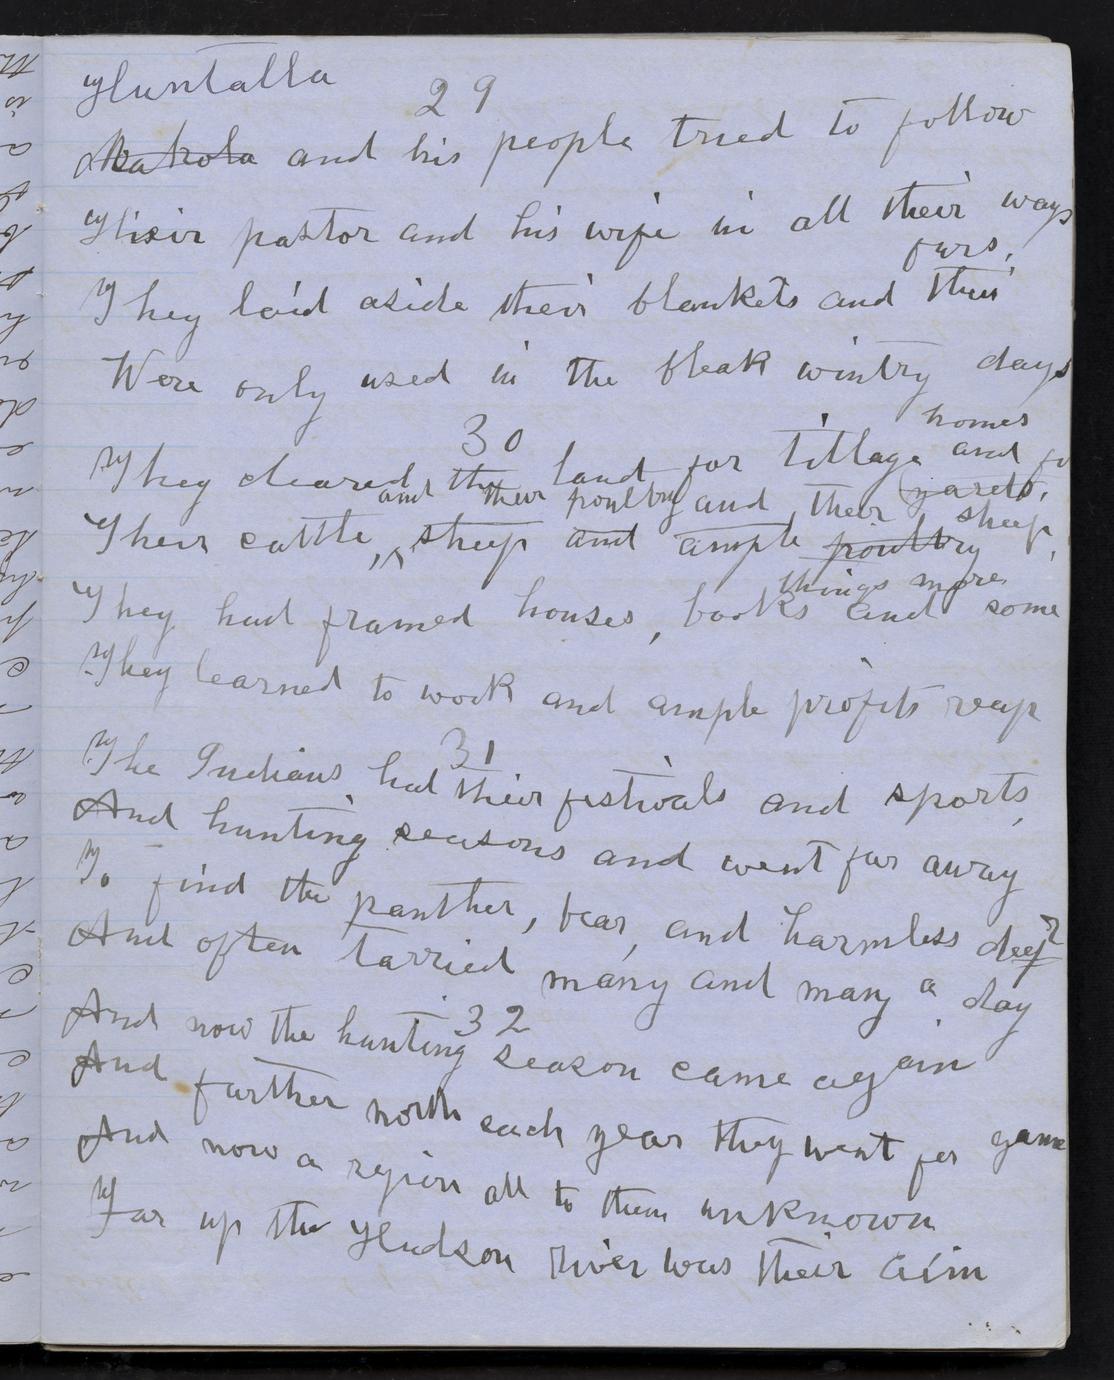 Huntalla
29
Makola and his people tried to follow
Their pastor and his wife in all their ways
furs,
They laid aside their blankets and their
Were only used in the bleak wintry days
homes
30
They cleared the land for tillage and
and their poultry and their yards,
sheep,
Their cattle, sheep and ample poultry
things more
They had framed houses, books and some
They learned to work and ample profits reap
31
The Indians had their festivals and sports,
And hunting seasons and went far away
To find the panther, bear, and harmless deer
And often tarried many and many a day
32
And now the hunting season came again
And further north each year they went for game
And now a region all to them unknown
Far up the Hudson River was their aim